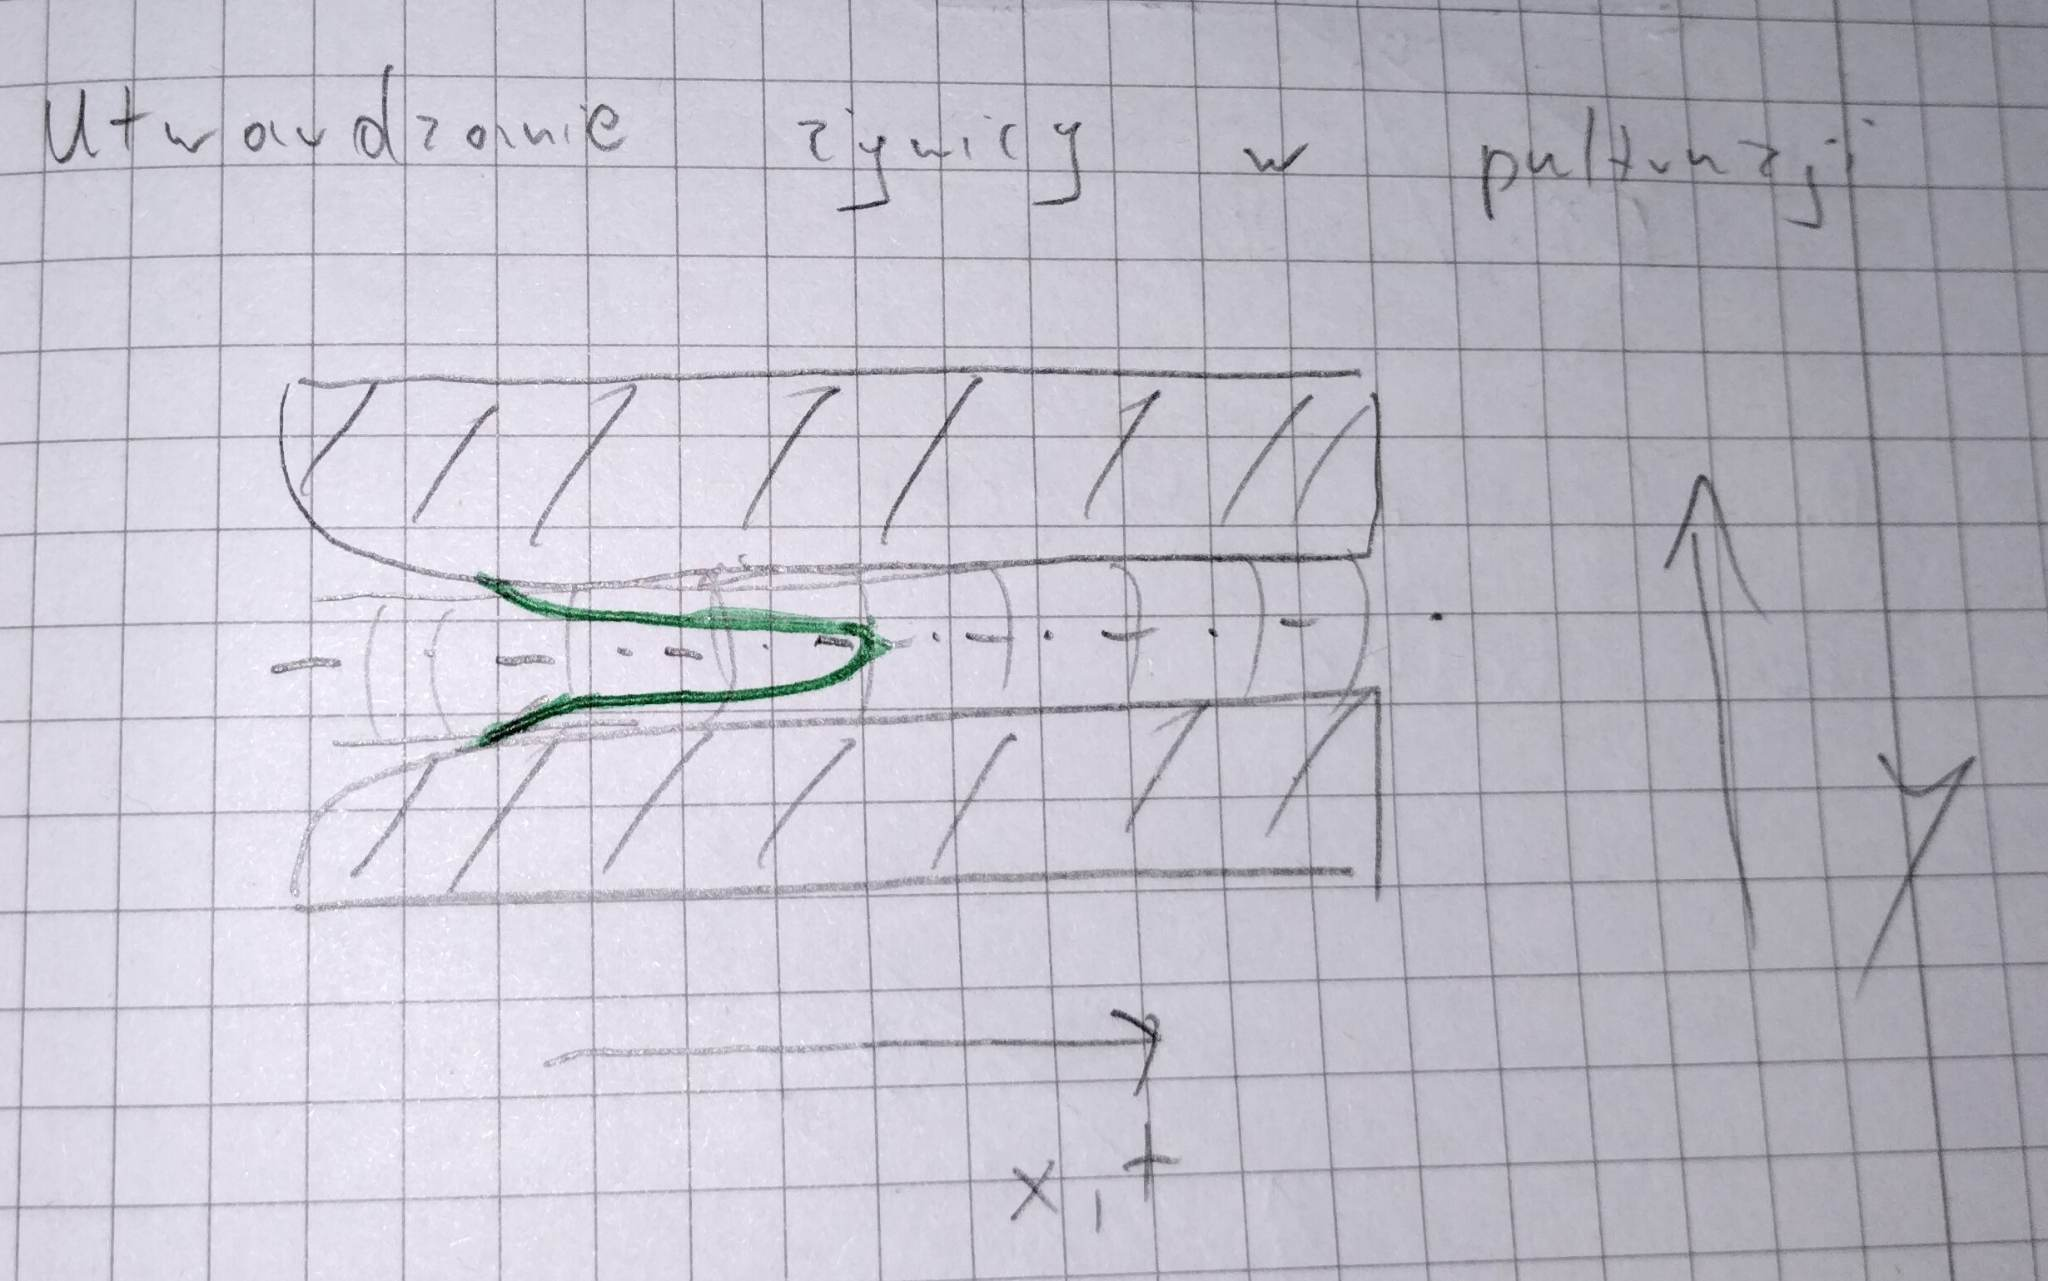 Utwardzanie żywicy w pultruzji
y
x, t